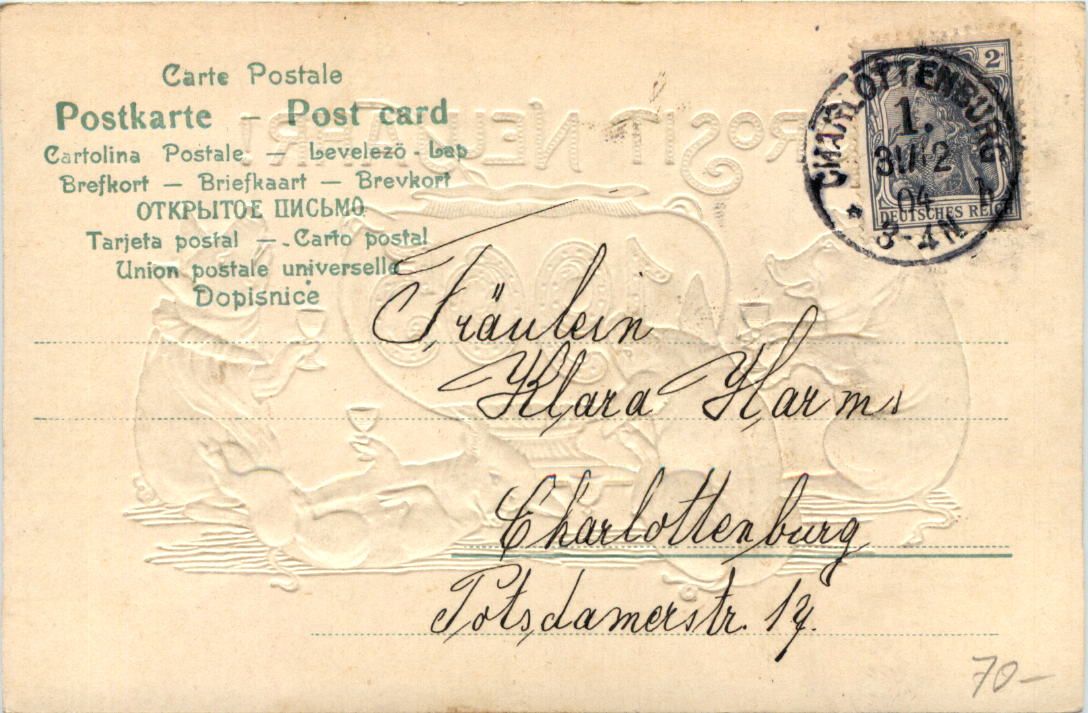 Carte Postale
Postkarte – Post card
Cartolina Postale – Levelező-Lap
Brefkort – Briefkaart – Brevkort
ОТКРЫТОЕ ПИСЬМО
Tarjeta postal – Carto postal
Union postale universelle
Dopisnice
PROSIT NEUJAHR!
1905
2
DEUTSCHES REICH
CHARLOTTENBURG
1.
31/12
04
3-4N
Fräulein
Klara Harms
Charlottenburg
Potsdamerstr. 17.
70–